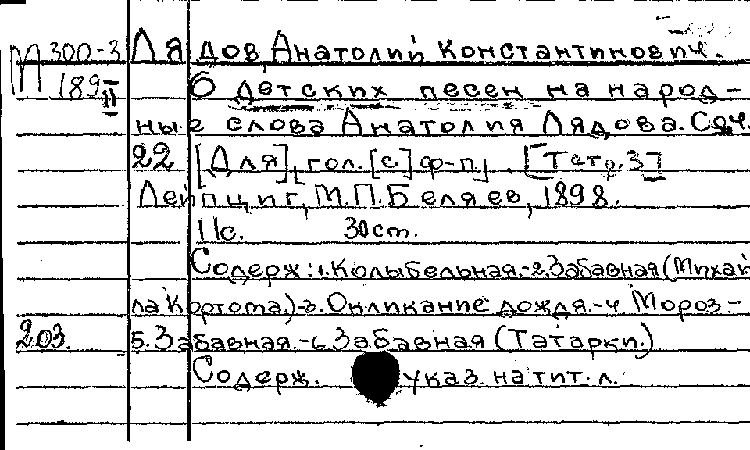 М 300-3 Ля дов, Анатолий Константинович.
189 II 6 детских песен на народ-
ные слова Анатолия Лядова. Соч.
22 [Для] гол. [с] ф-п. [Тетр. 3]
Лейпциг, М.П.Беляев, 1898.
11с. 30см.
Содерж: 1. Колыбельная.-2. Забавная (Михаи
ла Кортома)-3. Окликание дождя.-4 Мороз-
203. 5. Забавная.-6. Забавная (Татарки.)
Содерж. указ. на тит. л.